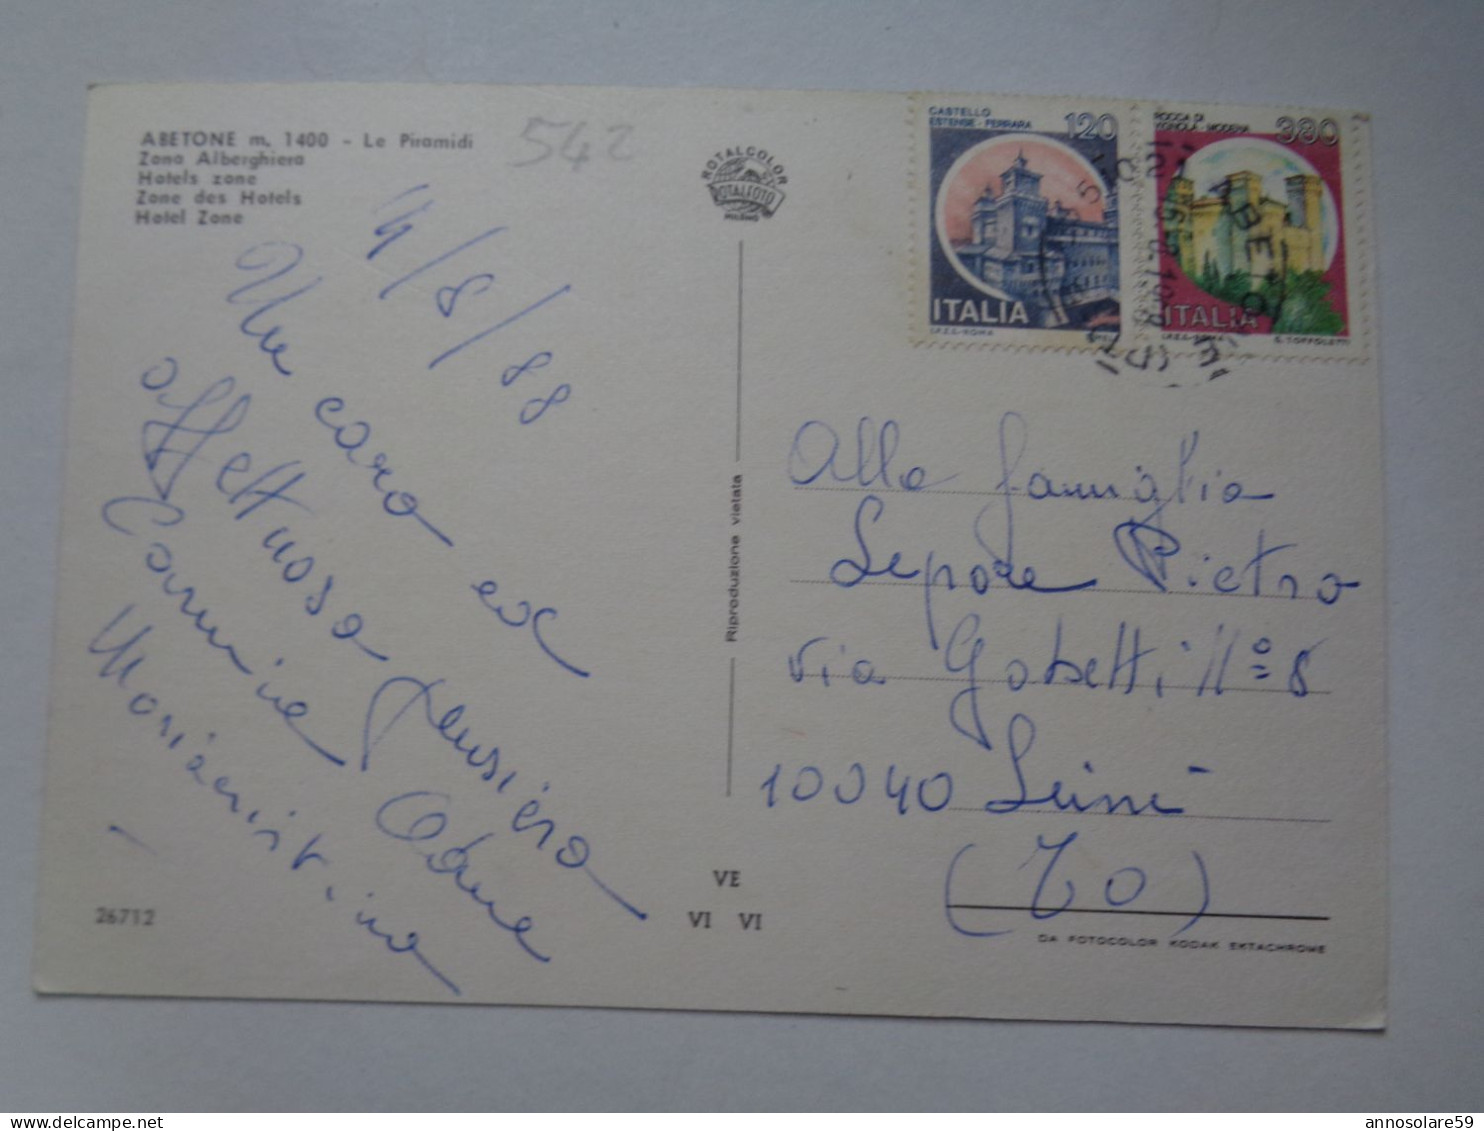 ABETONE m. 1400 - Le Piramidi
Zona Alberghiera
Hotels zone
Zone des Hotels
Hotel Zone
542
ROTALCOLOR
ROTALFOTO
MILANO
CASTELLO
ESTENSE - FERRARA
120
ITALIA
I.P.Z.S.-ROMA
ROCCA DI
VIGNOLA - MODENA
380
ITALIA
I.P.Z.S.-ROMA
E. TOFFOLETTI
ABETONE
4/8/88
Un caro ed
affettuoso pensiero
Carmine
Mariacristina
Riproduzione vietata
Alla famiglia
Lepore Pietro
via Gobetti N° 8
10040 Leini
(TO)
26712
VE
VI VI
DA FOTOCOLOR KODAK EKTACHROME
annosolare59
delcampe.net